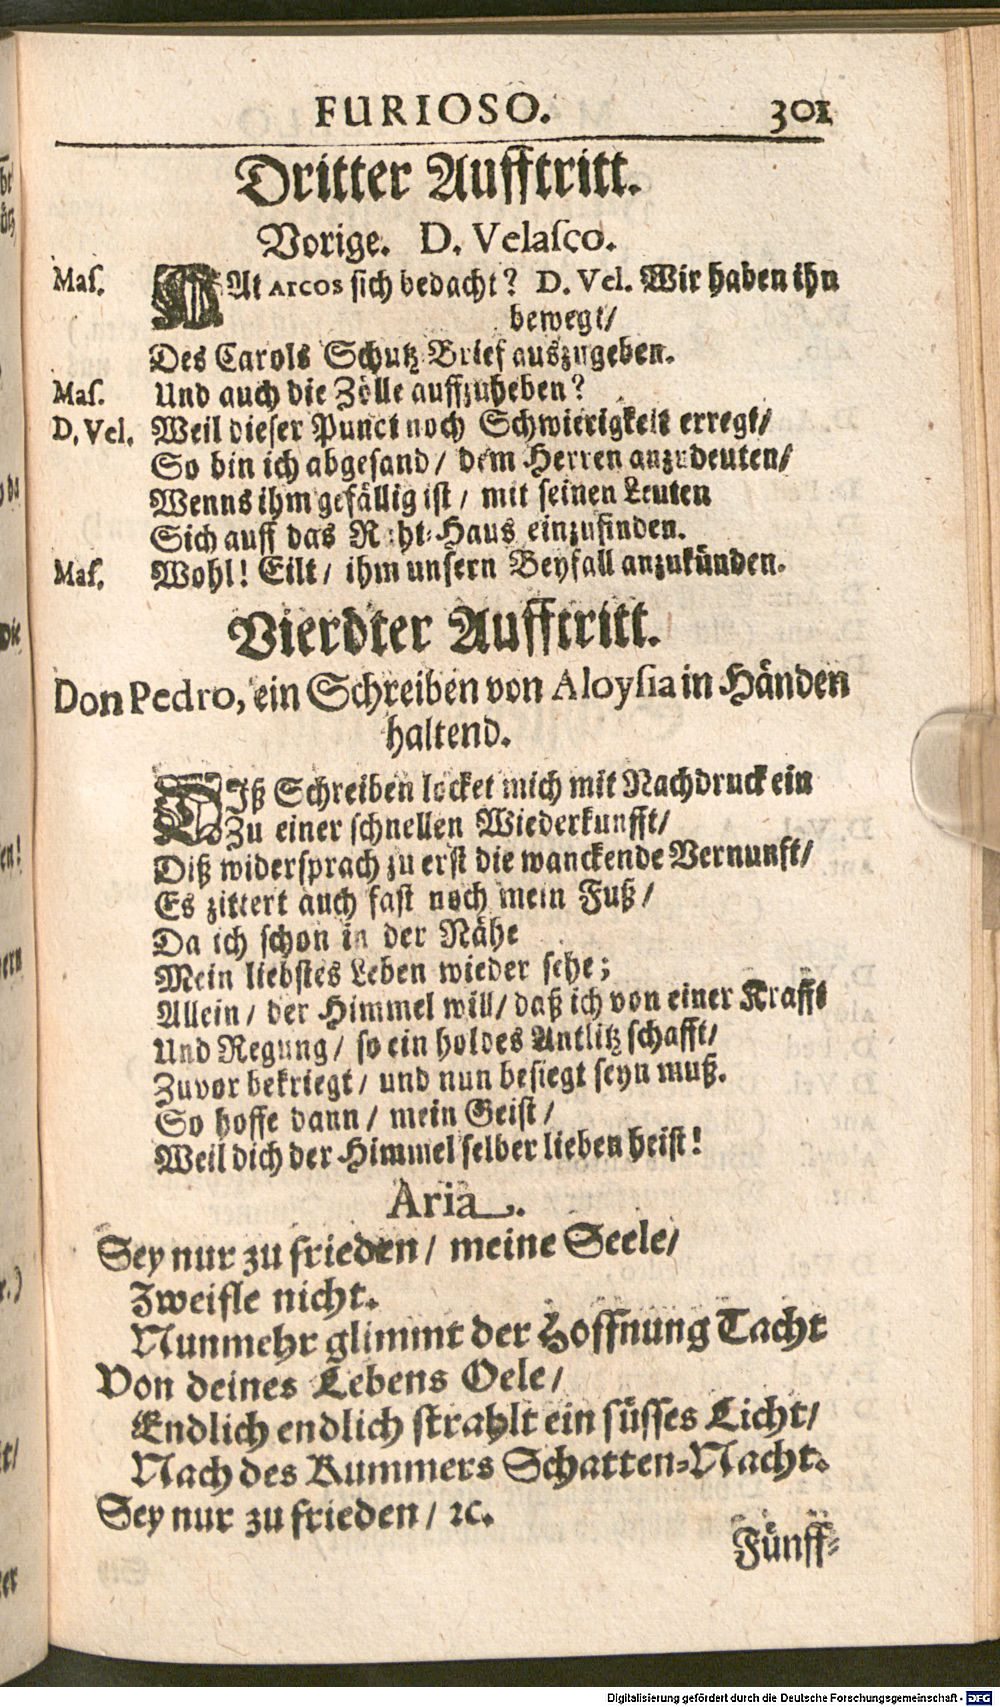 FURIOSO. 301
Dritter Aufftritt.
Vorige. D. Velaſco.
Maſ. HAt Arcos ſich bedacht? D. Vel. Wir haben ihn
bewegt/
Des Carols Schutz-Brief auszugeben.
Maſ. Und auch die Zölle auffzuheben?
D. Vel. Weil dieſer Punct noch Schwierigkeit erregt/
So bin ich abgeſand/ dem Herren anzudeuten/
Wenns ihm gefällig iſt/ mit ſeinen Leuten
Sich auff das Raht-Haus einzufinden.
Maſ. Wohl! Eilt/ ihm unſern Beyfall anzukünden.
Vierdter Aufftritt.
Don Pedro, ein Schreiben von Aloyſia in Händen
haltend.
DIß Schreiben locket mich mit Nachdruck ein
Zu einer ſchnellen Wiederkunfft/
Diß widerſprach zu erſt die wanckende Vernunft/
Es zittert auch faſt noch mein Fuß/
Da ich ſchon in der Nähe
Mein liebſtes Leben wieder ſehe;
Allein/ der Himmel will/ daß ich von einer Krafft
Und Regung/ ſo ein holdes Antlitz ſchafft/
Zuvor bekriegt/ und nun beſiegt ſeyn muß.
So hoffe dann/ mein Geiſt/
Weil dich der Himmel ſelber lieben heiſt!
Aria.
Sey nur zu frieden/ meine Seele/
Zweifle nicht.
Nunmehr glimmt der Hoffnung Tacht
Von deines Lebens Oele/
Endlich endlich ſtrahlt ein ſüſſes Licht/
Nach des Kummers Schatten-Nacht.
Sey nur zu frieden/ ꝛc.
Fünff-
Digitalisierung gefördert durch die Deutsche Forschungsgemeinschaft - DFG